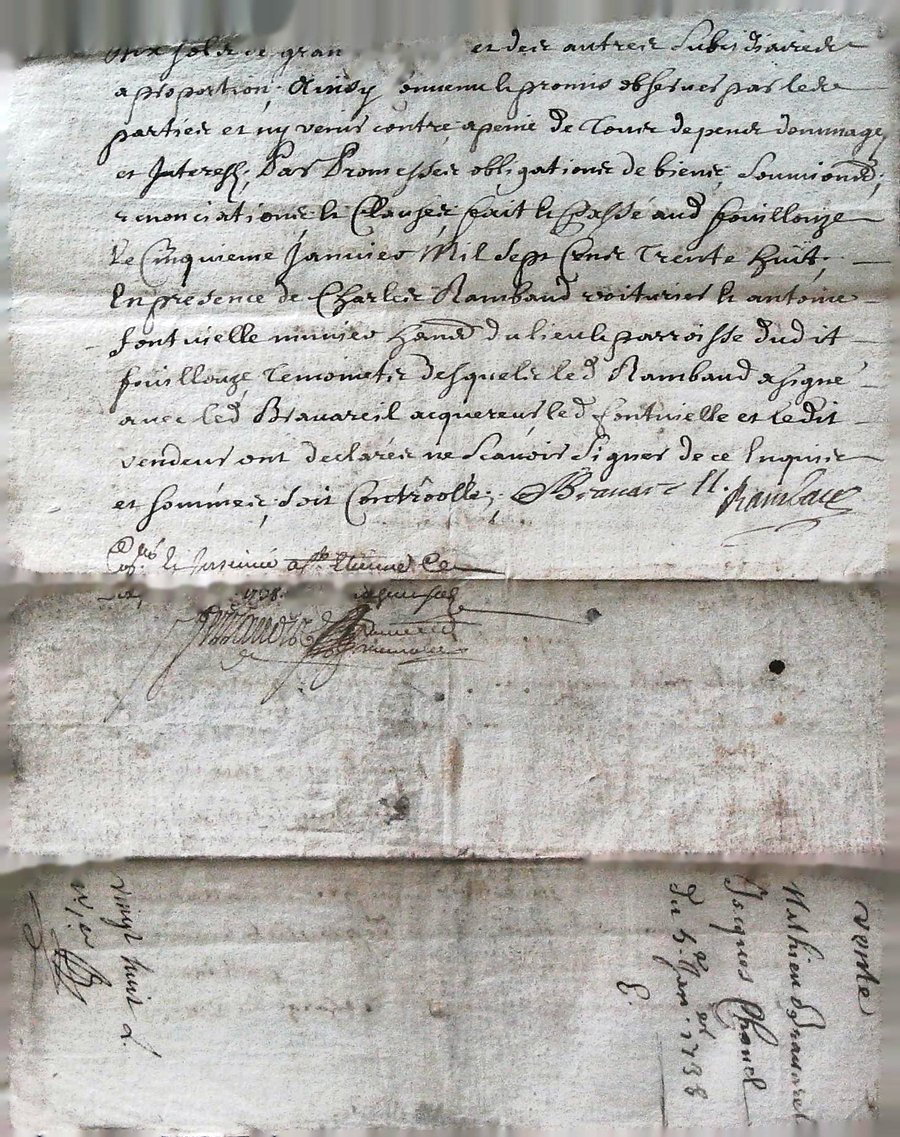 onze sols ce gran et des autres subsidiaires
a proportion, Ainsy convenu & promis observer par lesd
parties et ny venir contre a peine de tous depens dommages
et Interests, Par Promesses obligations de biens, soumiond,
renonciations & Clauses, fait & Passé aud fouillouze
Le Cinquieme Janvier Mil Sept Cens Trente Huit,
En presence de Charles Rambaud voiturier & antoine
fontvielle munier habd du lieu & parroisse dudit
fouillouze Temoins desquels led Rambaud a signé
avec led Bravareil acquereur, led fontvielle et ledit
vendeur ont declarés ne Scavoir Signer de ce Enquis
et Sommés, soit Controollé, Bravareil. Rambaud
& Insinué a St. Etienne Le
vente
Mathieu Bravarel
Jaques
du 5e. Janer. 1738
vingt huit L